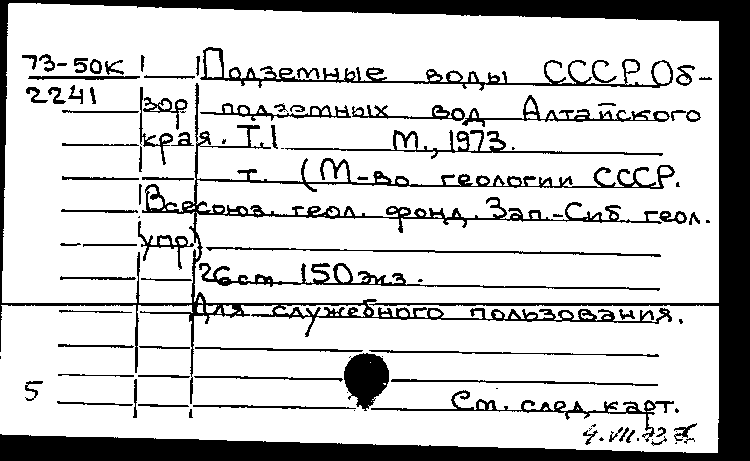 73-50К Подземные воды СССР. Об-
2241 зор подземных вод Алтайского
края. Т.1 М., 1973.
т. (М-во геологии СССР.
Всесоюз. геол. фонд. Зап.-Сиб. геол.
упр).
26см. 150 экз.
Для служебного пользования.
5 См. след. карт.
4.VII.73